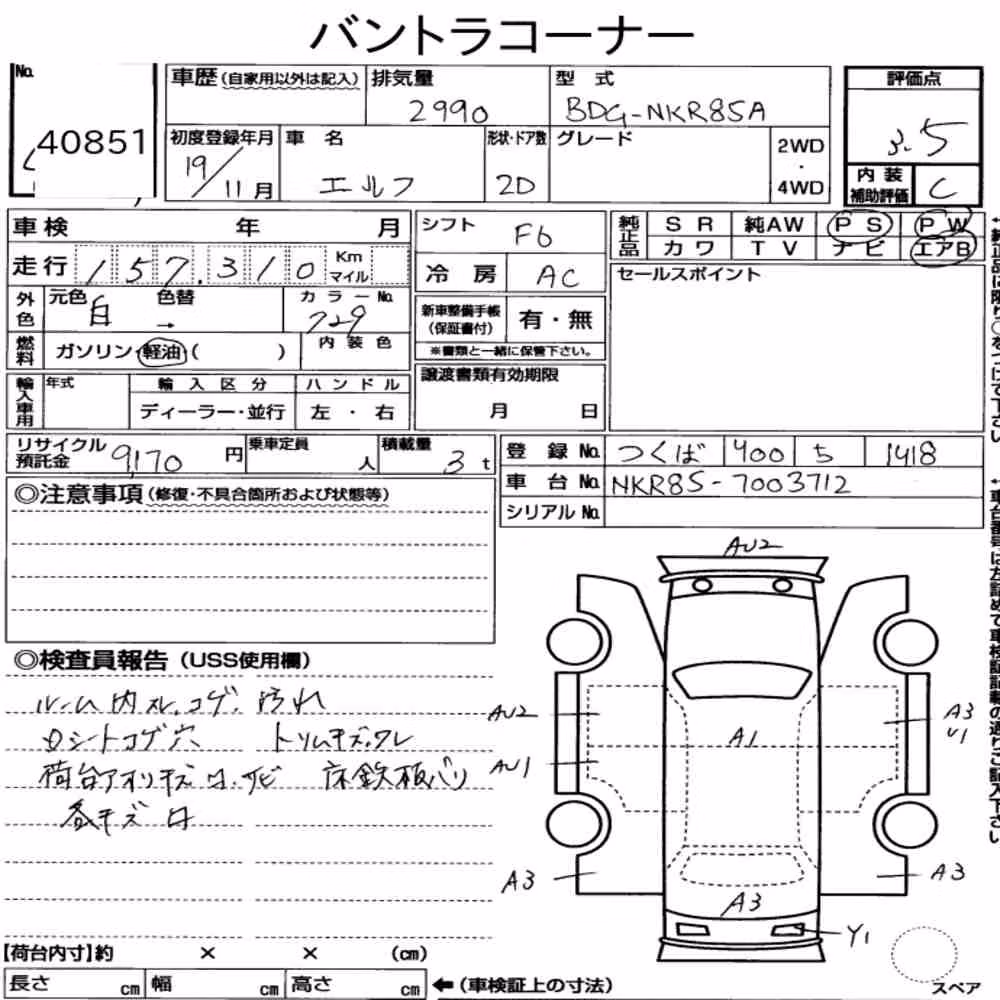 バントラコーナー
No. 40851
車歴(自家用以外は記入) 排気量 2990 型式 BDG-NKR85A
評価点 3.5
初度登録年月 19/11月 車名 エルフ 形状・ドア数 2D グレード 2WD・4WD
内装補助評価 C
車検 年 月 シフト F6
純正品 SR 純AW PS PW
カワ TV ナビ エアB
走行 157,310 Km マイル
冷房 AC
セールスポイント
外色 元色 白 色替 → カラーNo. 729
新車整備手帳(保証書付) 有・無
※書類と一緒に保管下さい。
燃料 ガソリン・軽油( ) 内装色
譲渡書類有効期限 月 日
輸入車用 年式 輸入区分 ハンドル
ディーラー・並行 左・右
リサイクル預託金 9,170円 乗車定員 人 積載量 3t
登録No. つくば 400 ち 1418
車台No. NKR85-7003712
シリアルNo.
◎注意事項(修復・不具合箇所および状態等)
◎検査員報告(USS使用欄)
ルーム内スレ.コゲ.汚れ
ロシートコゲ穴 トリムキズ.ワレ
荷台アオリキズ ロ.サビ 床鉄板バリ
各キズ ロ
AU2
AU2
A3
U1
A1
AU1
A3
A3
A3
Y1
スペア
【荷台内寸】約 × × (cm)
長さ cm 幅 cm 高さ cm ←(車検証上の寸法)
↑純正品に限り○をつけて下さい
↑車台番号は左詰めで車検証記載の通りご記入下さい